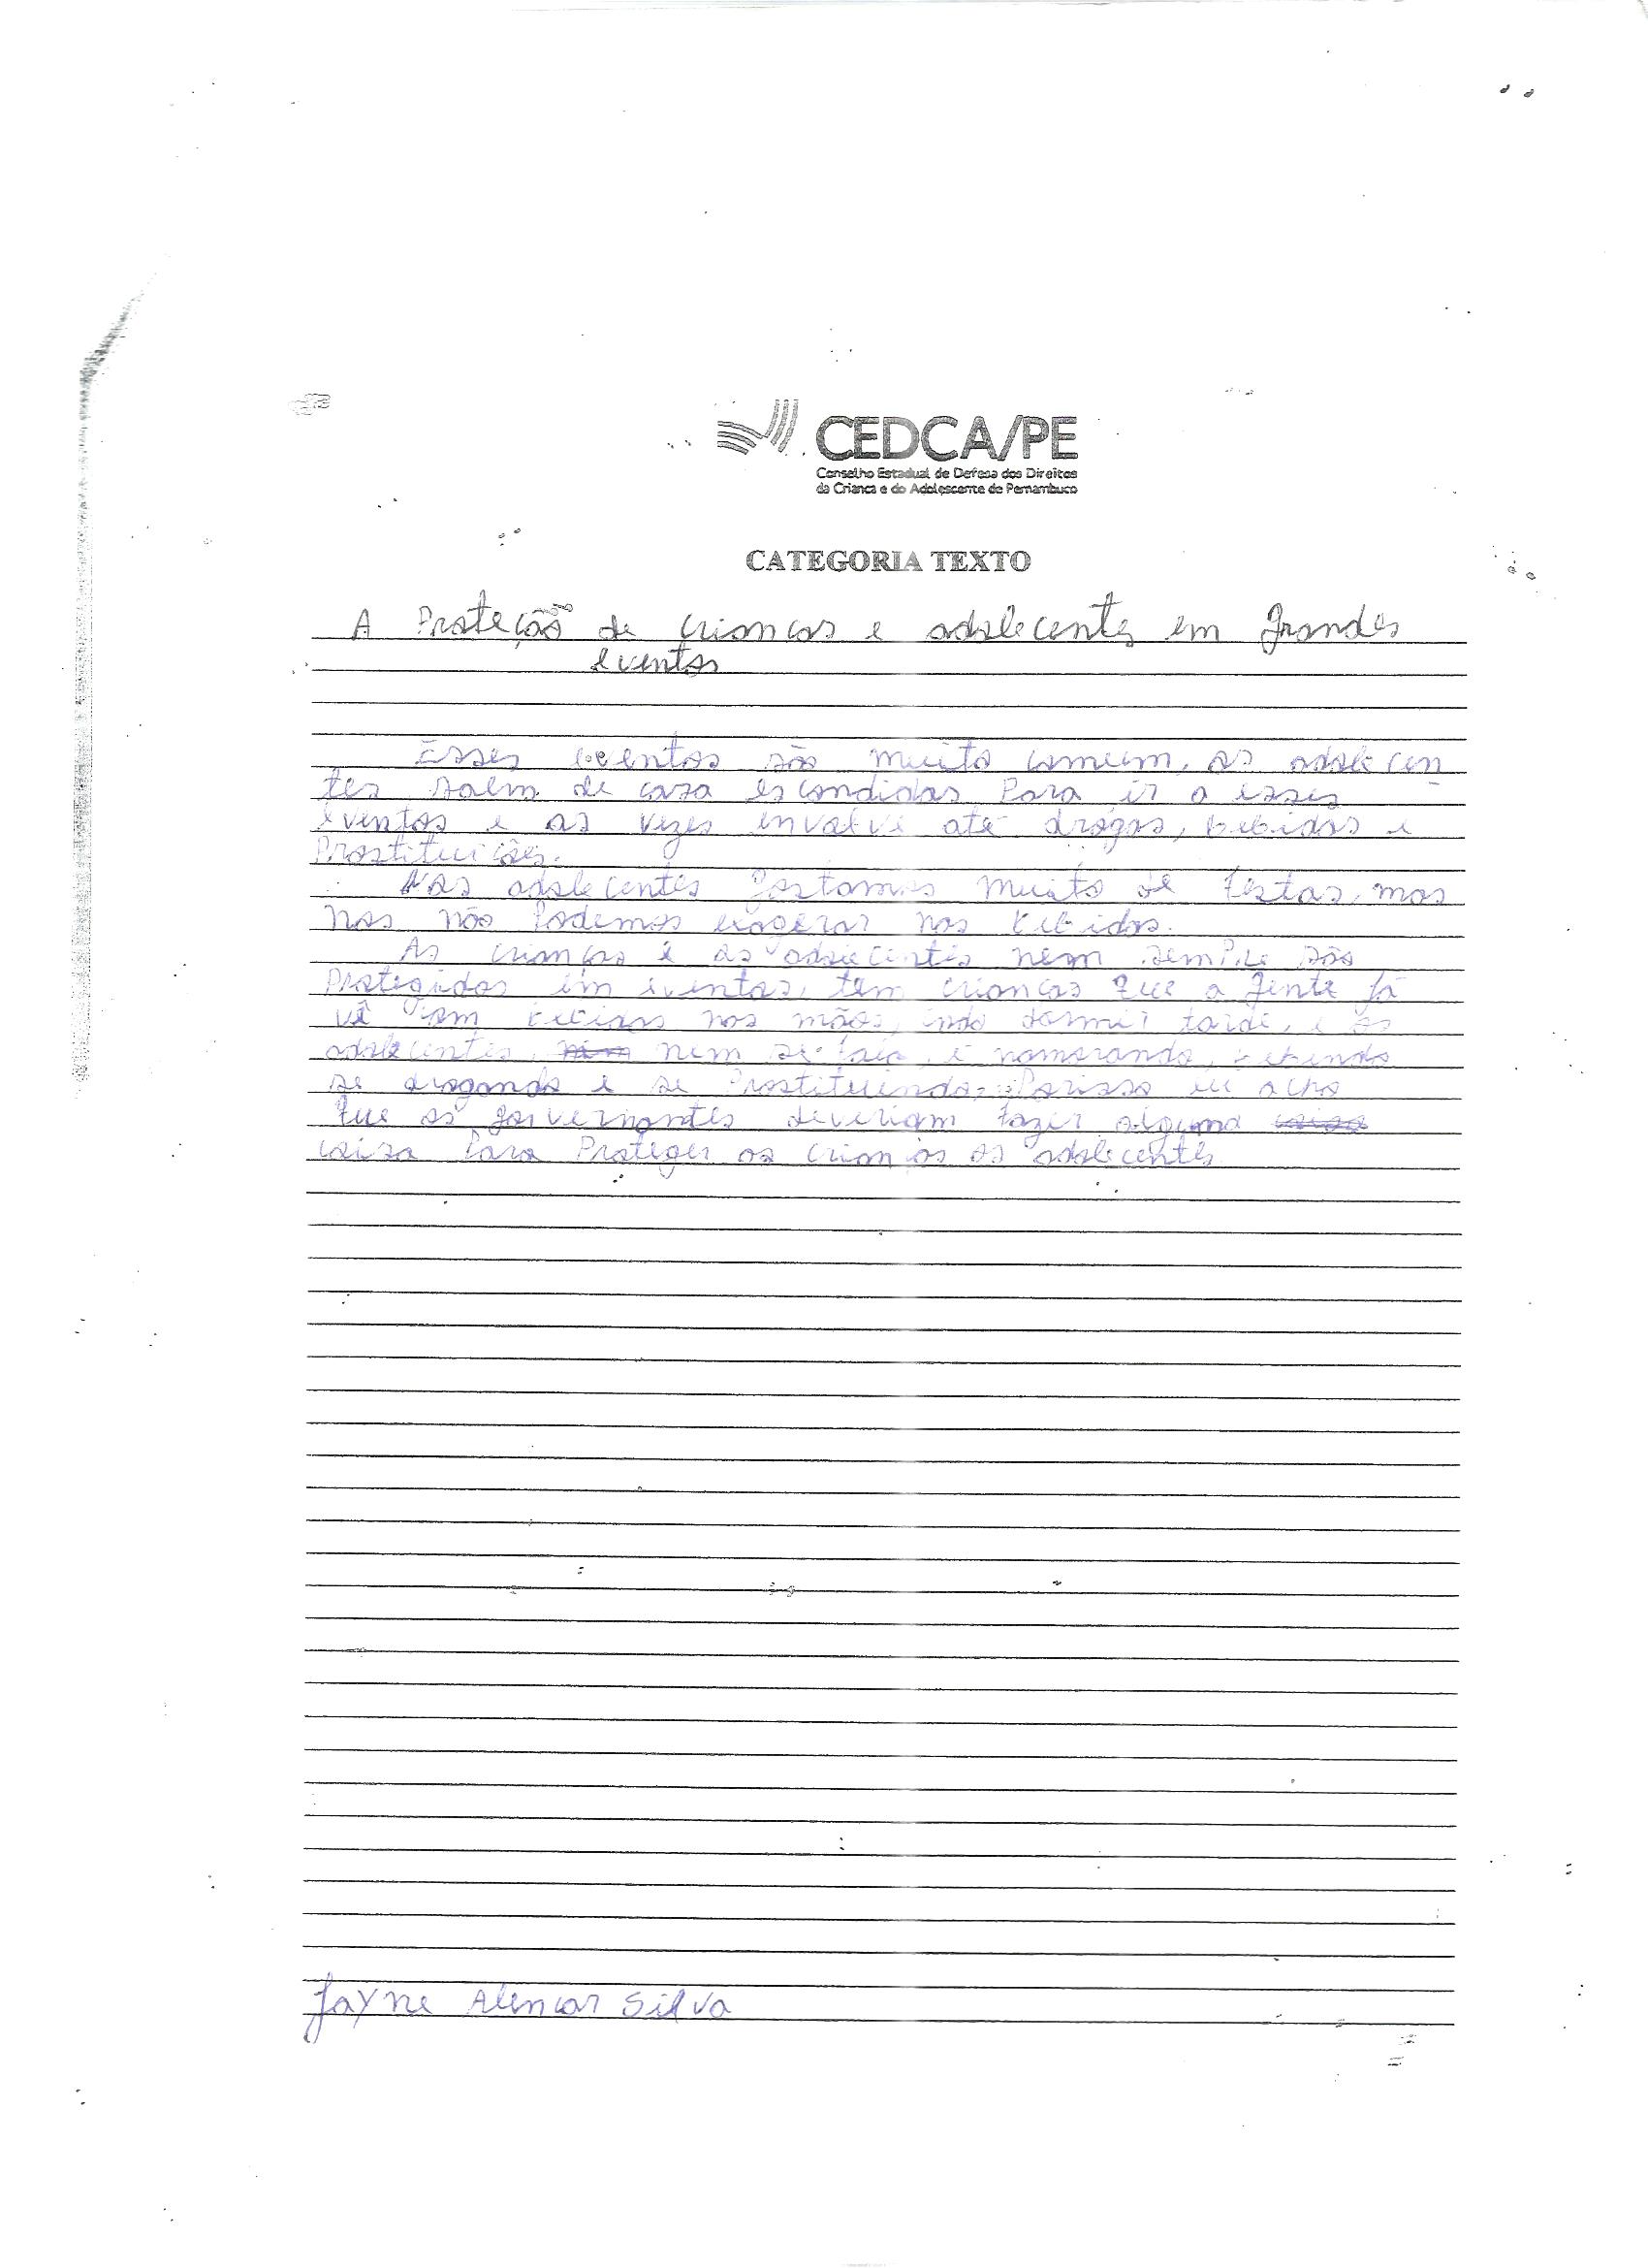 CEDCA/PE
Conselho Estadual de Defesa dos Direitos
da Criança e do Adolescente de Pernambuco
CATEGORIA TEXTO
A Proteção de crianças e adolecentes em grandes
eventos
Esses eventos são muito comum, os adolecen
tes saem de casa escondidos Para ir a esses
eventos e as vezes envolve até drogas, bebidas e
Prostituições.
Nos adolecentes gostamos muito de festas, mas
nos não Podemos exagerar nas bebidas.
As crianças e os adolecentes nem sempre são
Protegidos em eventos, tem crianças que a gente já
vê com bebidas nas mãos, indo dormir tarde, e os
adolecentes, nem se fala, é namorando, bebendo
se drogando e se Prostituindo, Porisso eu acho
que os governantes deveriam fazer alguma
coisa Para Proteger as crianças os adolecentes
Jayne Alencar Silva